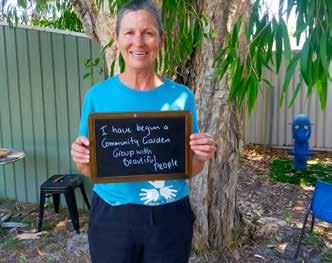 I have begun a
Community Garden
Group with
Beautiful
People